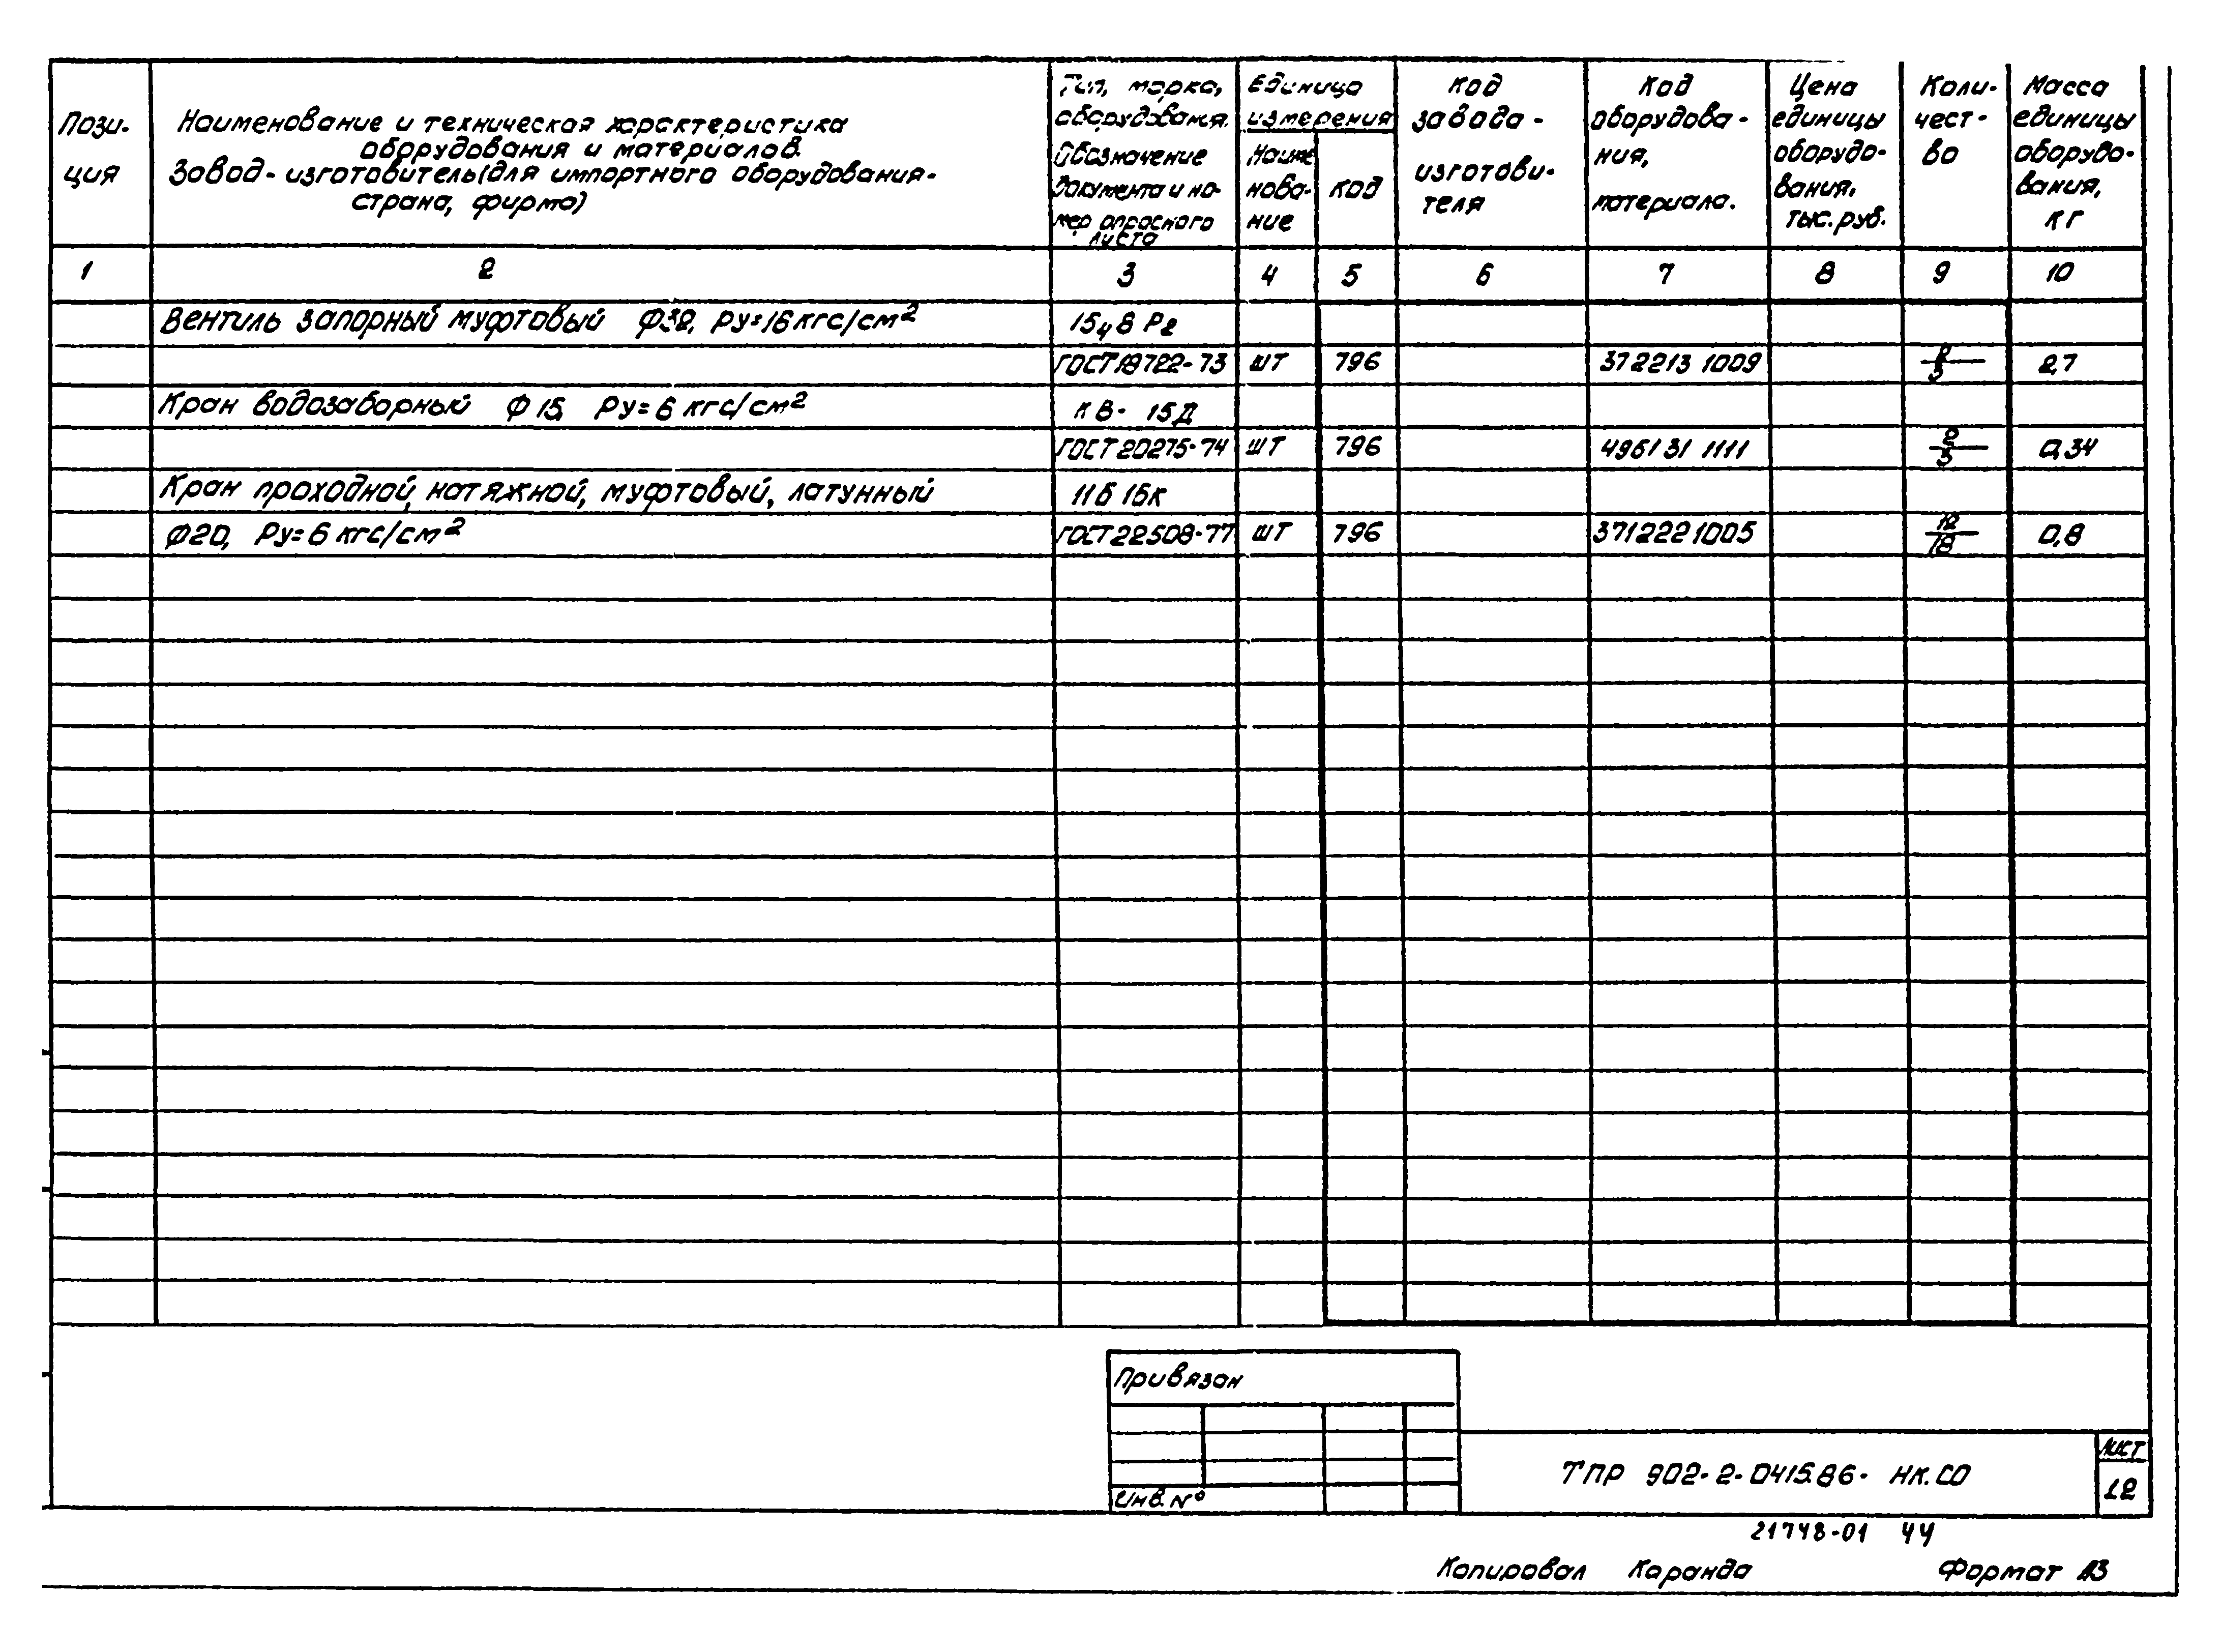 Пози-
ция
Наименование и техническая характеристика
оборудования и материалов.
Завод-изготовитель (для импортного оборудования-
страна, фирма)
Тип, марка,
оборудования.
Обозначение
документа и но-
мер опросного
листа
Единица
измерения
Наиме
нова-
ние
код
Код
завода-
изготови-
теля
Код
оборудова-
ния,
материала.
Цена
единицы
оборудо-
вания,
тыс.руб.
Коли-
чест-
во
Масса
единицы
оборудо-
вания,
кг
1 2 3 4 5 6 7 8 9 10
Вентиль запорный муфтовый Ф32, Ру=16кгс/см² 15ч8 Р2
ГОСТ18722-73 шт 796 372213 1009 2/3 2,7
Кран водозаборный Ф15, Ру=6 кгс/см² КВ- 15Д
ГОСТ20275-74 шт 796 495131 1111 2/3 0,34
Кран проходной, натяжной, муфтовый, латунный 11Б 1бк
Ф20, Ру=6 кгс/см² ГОСТ22508-77 шт 796 3712221005 12/18 0,8
Привязан
Инв.№
ТПР 902-2-0415.86- НК.СО
лист
12
21748-01 44
Копировал Каранда Формат А3